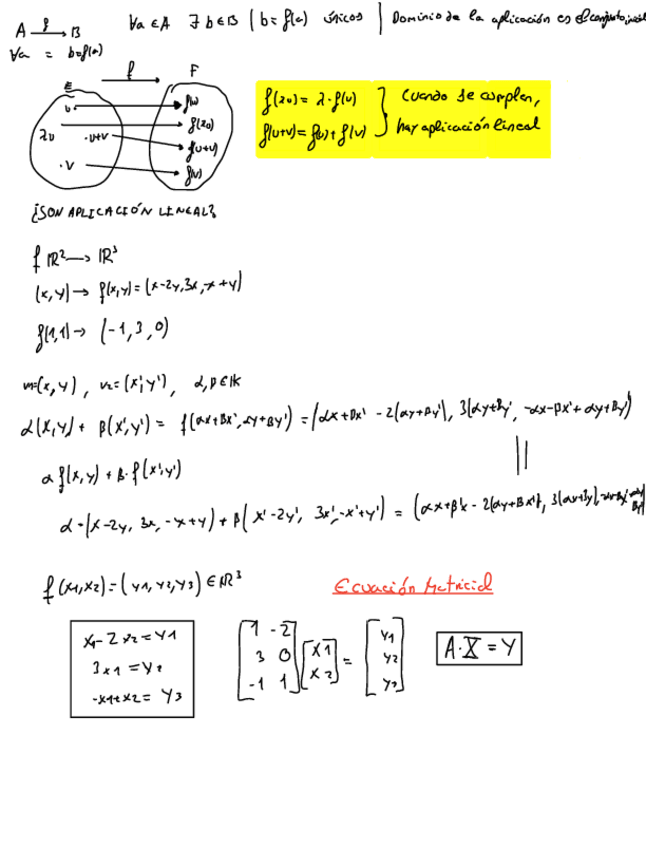 A f→ B ∀a ∈ A ∃ b ∈ B | b = f(a) únicos | Dominio de la aplicación es el conjunto
∀a = b=f(a)
E f F
u. f(u)
λu f(λu)
.u+v f(u+v)
.v f(v)
f(λu) = λ·f(u)
f(u+v) = f(u)+f(v)
Cuando se cumplen,
hay aplicación lineal
¿SON APLICACIÓN LINEAL?
f ℝ² → ℝ³
(x,y) → f(x,y) = (x-2y, 3x, -x+y)
f(1,1) → (-1, 3, 0)
u=(x,y), v=(x',y'), α,β ∈ K
α(x,y) + β(x',y') = f(αx+βx', αy+βy') = (αx+βx' - 2(αy+βy'), 3(αy+βy', -αx-βx'+αy+βy')
||
α f(x,y) + β·f(x',y')
α·(x-2y, 3x, -x+y) + β(x'-2y', 3x', -x'+y') = (αx+β'x - 2(αy+βx'), 3(αx+βy),
f(x1,x2) = (y1,y2,y3) ∈ ℝ³
Ecuación Matricial
x1-2x2 = y1
3x1 = y2
-x1+x2 = y3
[1 -2] [x1] = [y1]
[3 0] [x2] [y2]
[-1 1] [y3]
A·X = Y